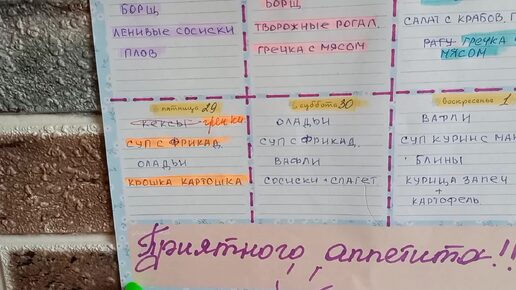 БОРЩ
ЛЕНИВЫЕ СОСИСКИ
ПЛОВ
БОРЩ
ТВОРОЖНЫЕ РОГАЛ.
ГРЕЧКА С МЯСОМ
САЛАТ С КРАБОВ. П
РАГУ ГРЕЧКА
МЯСОМ
пятница 29
КЕКСЫ гренки
СУП С ФРИКАД.
ОЛАДЬИ
КРОШКА КАРТОШКА
суббота 30
ОЛАДЬИ
СУП С ФРИКАД.
ВАФЛИ
СОСИСКИ + СПАГЕТ
воскресенье 1
ВАФЛИ
СУП КУРИН С МАК
БЛИНЫ
КУРИЦА ЗАПЕЧ
+
КАРТОФЕЛЬ
Приятного аппетита!!